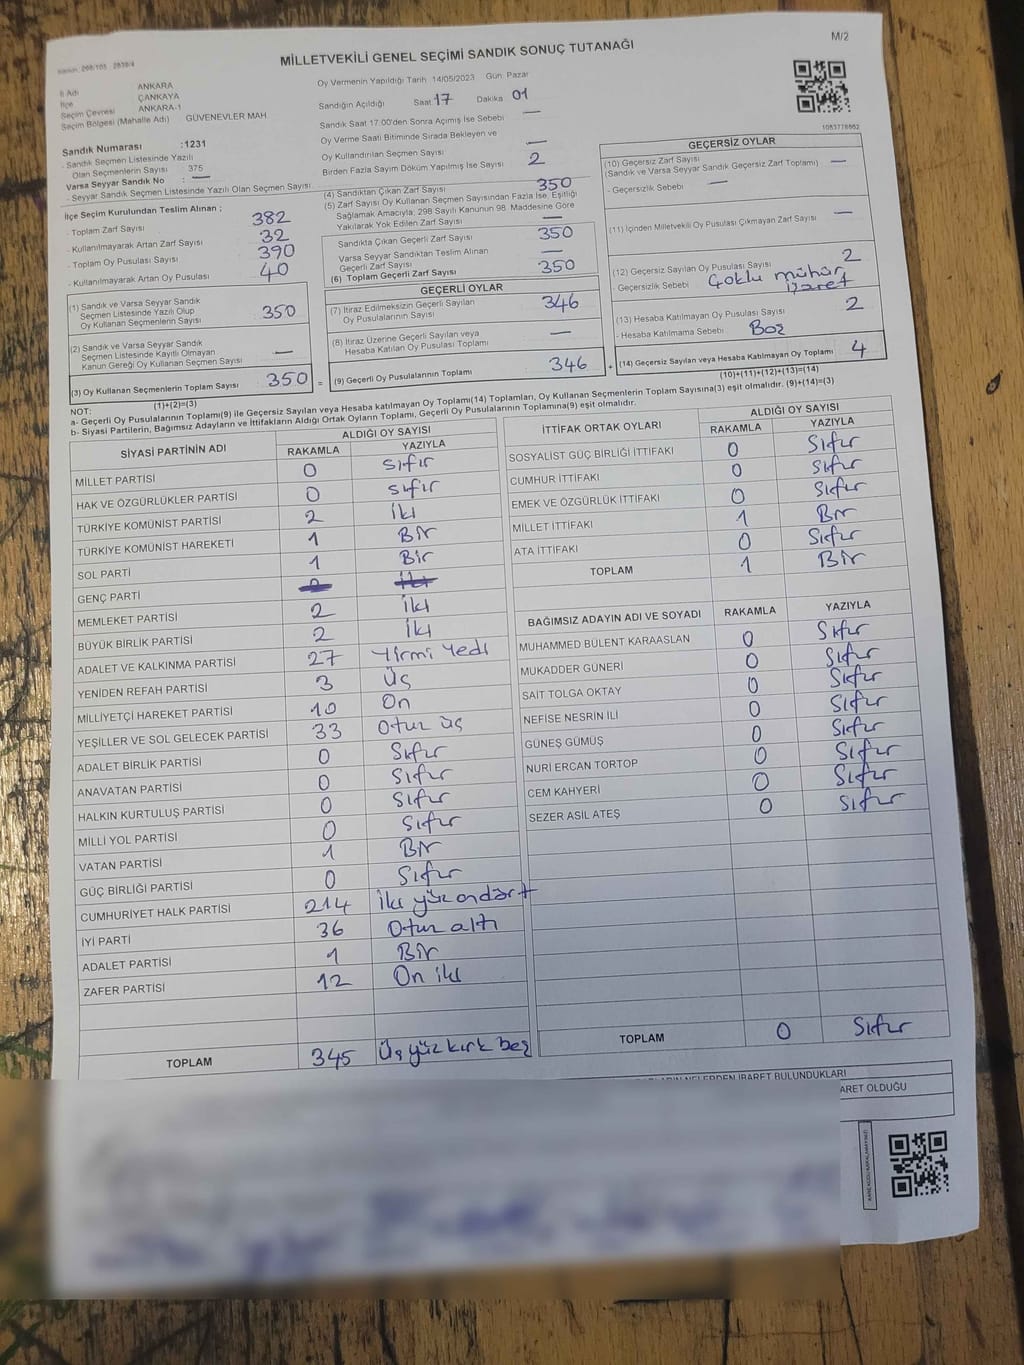 M/2
MİLLETVEKİLİ GENEL SEÇİMİ SANDIK SONUÇ TUTANAĞI
İl Adı ANKARA
İlçe ÇANKAYA
Seçim Çevresi ANKARA-1
Seçim Bölgesi (Mahalle Adı) GÜVENEVLER MAH
Sandık Numarası :1231
- Sandık Seçmen Listesinde Yazılı
Olan Seçmenlerin Sayısı 375
Varsa Seyyar Sandık No : —
- Seyyar Sandık Seçmen Listesinde Yazılı Olan Seçmen Sayısı
Oy Vermenin Yapıldığı Tarih 14/05/2023 Gün Pazar
Sandığın Açıldığı Saat 17 Dakika 01
Sandık Saat 17.00'den Sonra Açımış İse Sebebi —
Oy Verme Saati Bitiminde Sırada Bekleyen ve
Oy Kullandırılan Seçmen Sayısı —
Birden Fazla Sayım Döküm Yapılmış İse Sayısı 2
1083778662
İlçe Seçim Kurulundan Teslim Alınan ;
- Toplam Zarf Sayısı 382
- Kullanılmayarak Artan Zarf Sayısı 32
- Toplam Oy Pusulası Sayısı 390
- Kullanılmayarak Artan Oy Pusulası 40
(1) Sandık ve Varsa Seyyar Sandık
Seçmen Listesinde Yazılı Olup
Oy Kullanan Seçmenlerin Sayısı 350
(2) Sandık ve Varsa Seyyar Sandık
Seçmen Listesinde Kayıtlı Olmayan
Kanun Gereği Oy Kullanan Seçmen Sayısı —
(3) Oy Kullanan Seçmenlerin Toplam Sayısı 350 =
(1)+(2)=(3)
(4) Sandıktan Çıkan Zarf Sayısı 350
(5) Zarf Sayısı Oy Kullanan Seçmen Sayısından Fazla İse, Eşitliği
Sağlamak Amacıyla, 298 Sayılı Kanunun 98. Maddesine Göre
Yakılarak Yok Edilen Zarf Sayısı —
Sandıkta Çıkan Geçerli Zarf Sayısı 350
Varsa Seyyar Sandıktan Teslim Alınan
Geçerli Zarf Sayısı —
(6) Toplam Geçerli Zarf Sayısı 350
GEÇERLİ OYLAR
(7) İtiraz Edilmeksizin Geçerli Sayılan
Oy Pusulalarının Sayısı 346
(8) İtiraz Üzerine Geçerli Sayılan veya
Hesaba Katılan Oy Pusulası Toplamı —
(9) Geçerli Oy Pusulalarının Toplamı 346 +
GEÇERSİZ OYLAR
(10) Geçersiz Zarf Sayısı
(Sandık ve Varsa Seyyar Sandık Geçersiz Zarf Toplamı) —
- Geçersizlik Sebebi —
(11) İçinden Milletvekili Oy Pusulası Çıkmayan Zarf Sayısı —
(12) Geçersiz Sayılan Oy Pusulası Sayısı 2
- Geçersizlik Sebebi Çoklu mühür
işaret
(13) Hesaba Katılmayan Oy Pusulası Sayısı 2
- Hesaba Katılmama Sebebi Boş
(14) Geçersiz Sayılan veya Hesaba Katılmayan Oy Toplamı 4
(10)+(11)+(12)+(13)=(14)
NOT:
a- Geçerli Oy Pusulalarının Toplamı(9) ile Geçersiz Sayılan veya Hesaba katılmayan Oy Toplamı(14) Toplamları, Oy Kullanan Seçmenlerin Toplam Sayısına(3) eşit olmalıdır. (9)+(14)=(3)
b- Siyasi Partilerin, Bağımsız Adayların ve İttifakların Aldığı Ortak Oyların Toplamı, Geçerli Oy Pusulalarının Toplamına(9) eşit olmalıdır.
SİYASİ PARTİNİN ADI ALDIĞI OY SAYISI
RAKAMLA YAZIYLA
MİLLET PARTİSİ 0 sıfır
HAK VE ÖZGÜRLÜKLER PARTİSİ 0 sıfır
TÜRKİYE KOMÜNİST PARTİSİ 2 iki
TÜRKİYE KOMÜNİST HAREKETİ 1 Bir
SOL PARTİ 1 Bir
GENÇ PARTİ
MEMLEKET PARTİSİ 2 iki
BÜYÜK BİRLİK PARTİSİ 2 iki
ADALET VE KALKINMA PARTİSİ 27 Yirmi Yedi
YENİDEN REFAH PARTİSİ 3 Üç
MİLLİYETÇİ HAREKET PARTİSİ 10 On
YEŞİLLER VE SOL GELECEK PARTİSİ 33 Otuz üç
ADALET BİRLİK PARTİSİ 0 Sıfır
ANAVATAN PARTİSİ 0 Sıfır
HALKIN KURTULUŞ PARTİSİ 0 Sıfır
MİLLİ YOL PARTİSİ 0 Sıfır
VATAN PARTİSİ 1 Bir
GÜÇ BİRLİĞİ PARTİSİ 0 Sıfır
CUMHURİYET HALK PARTİSİ 214 iki yüz ondört
İYİ PARTİ 36 Otuz altı
ADALET PARTİSİ 1 Bir
ZAFER PARTİSİ 12 On iki
TOPLAM 345 Üç yüz kırk beş
İTTİFAK ORTAK OYLARI ALDIĞI OY SAYISI
RAKAMLA YAZIYLA
SOSYALİST GÜÇ BİRLİĞİ İTTİFAKI 0 Sıfır
CUMHUR İTTİFAKI 0 Sıfır
EMEK VE ÖZGÜRLÜK İTTİFAKI 0 Sıfır
MİLLET İTTİFAKI 1 Bir
ATA İTTİFAKI 0 Sıfır
TOPLAM 1 Bir
BAĞIMSIZ ADAYIN ADI VE SOYADI RAKAMLA YAZIYLA
MUHAMMED BÜLENT KARAASLAN 0 Sıfır
MUKADDER GÜNERİ 0 Sıfır
SAİT TOLGA OKTAY 0 Sıfır
NEFİSE NESRİN İLİ 0 Sıfır
GÜNEŞ GÜMÜŞ 0 Sıfır
NURİ ERCAN TORTOP 0 Sıfır
CEM KAHYERİ 0 Sıfır
SEZER ASIL ATEŞ 0 Sıfır
TOPLAM 0 Sıfır
NELERDEN İBARET BULUNDUKLARI
OLDUĞU